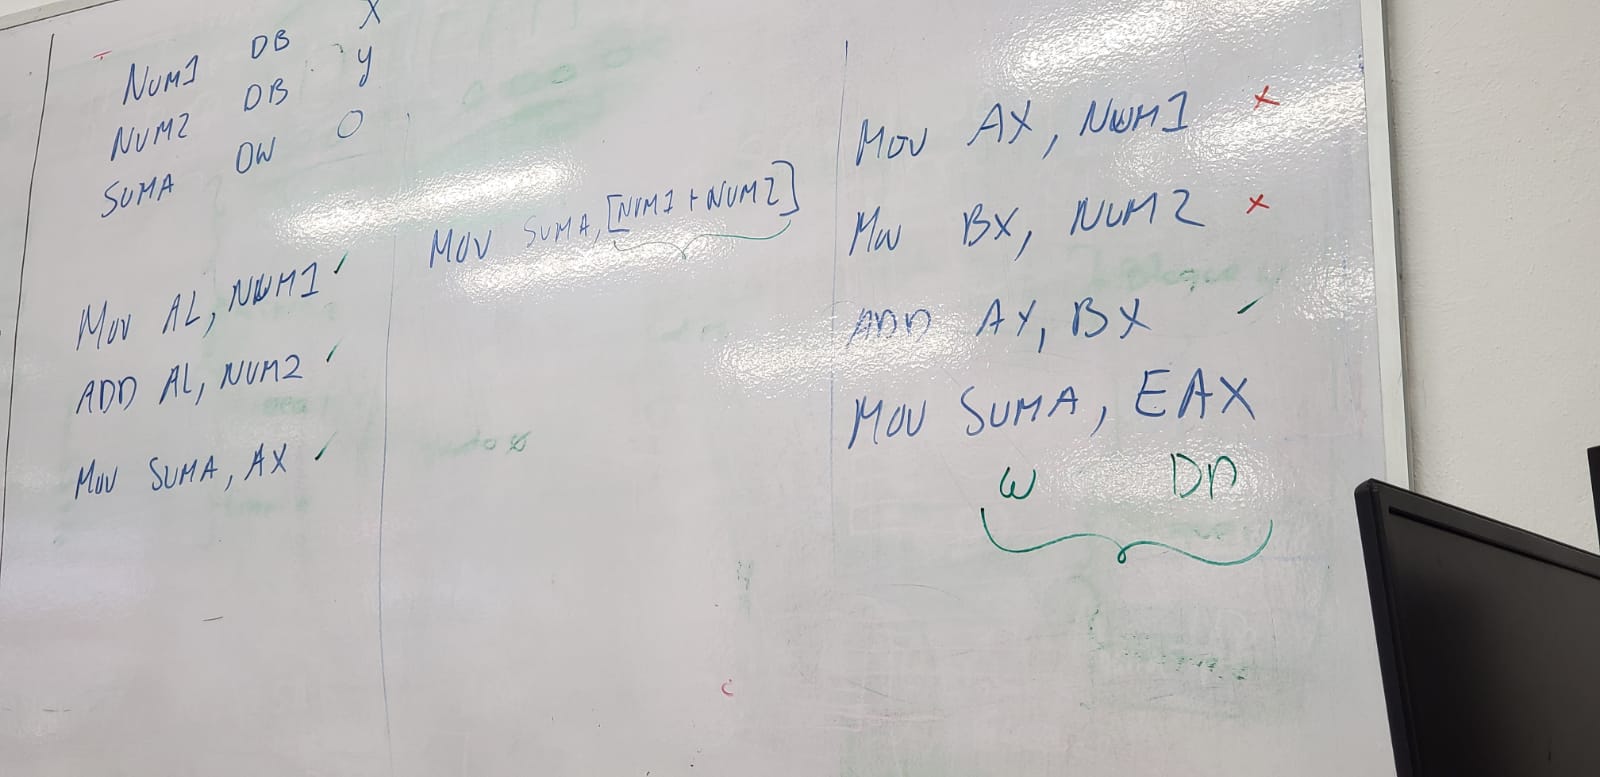 NUM1 DB X
NUM2 DB y
SUMA DW 0
MOV AL, NUM1 ✓
ADD AL, NUM2 ✓
MOV SUMA, AX ✓
MOV SUMA, [NUM1 + NUM2]
MOV AX, NUM1 x
MOV BX, NUM2 x
ADD AX, BX ✓
MOV SUMA, EAX
W DD